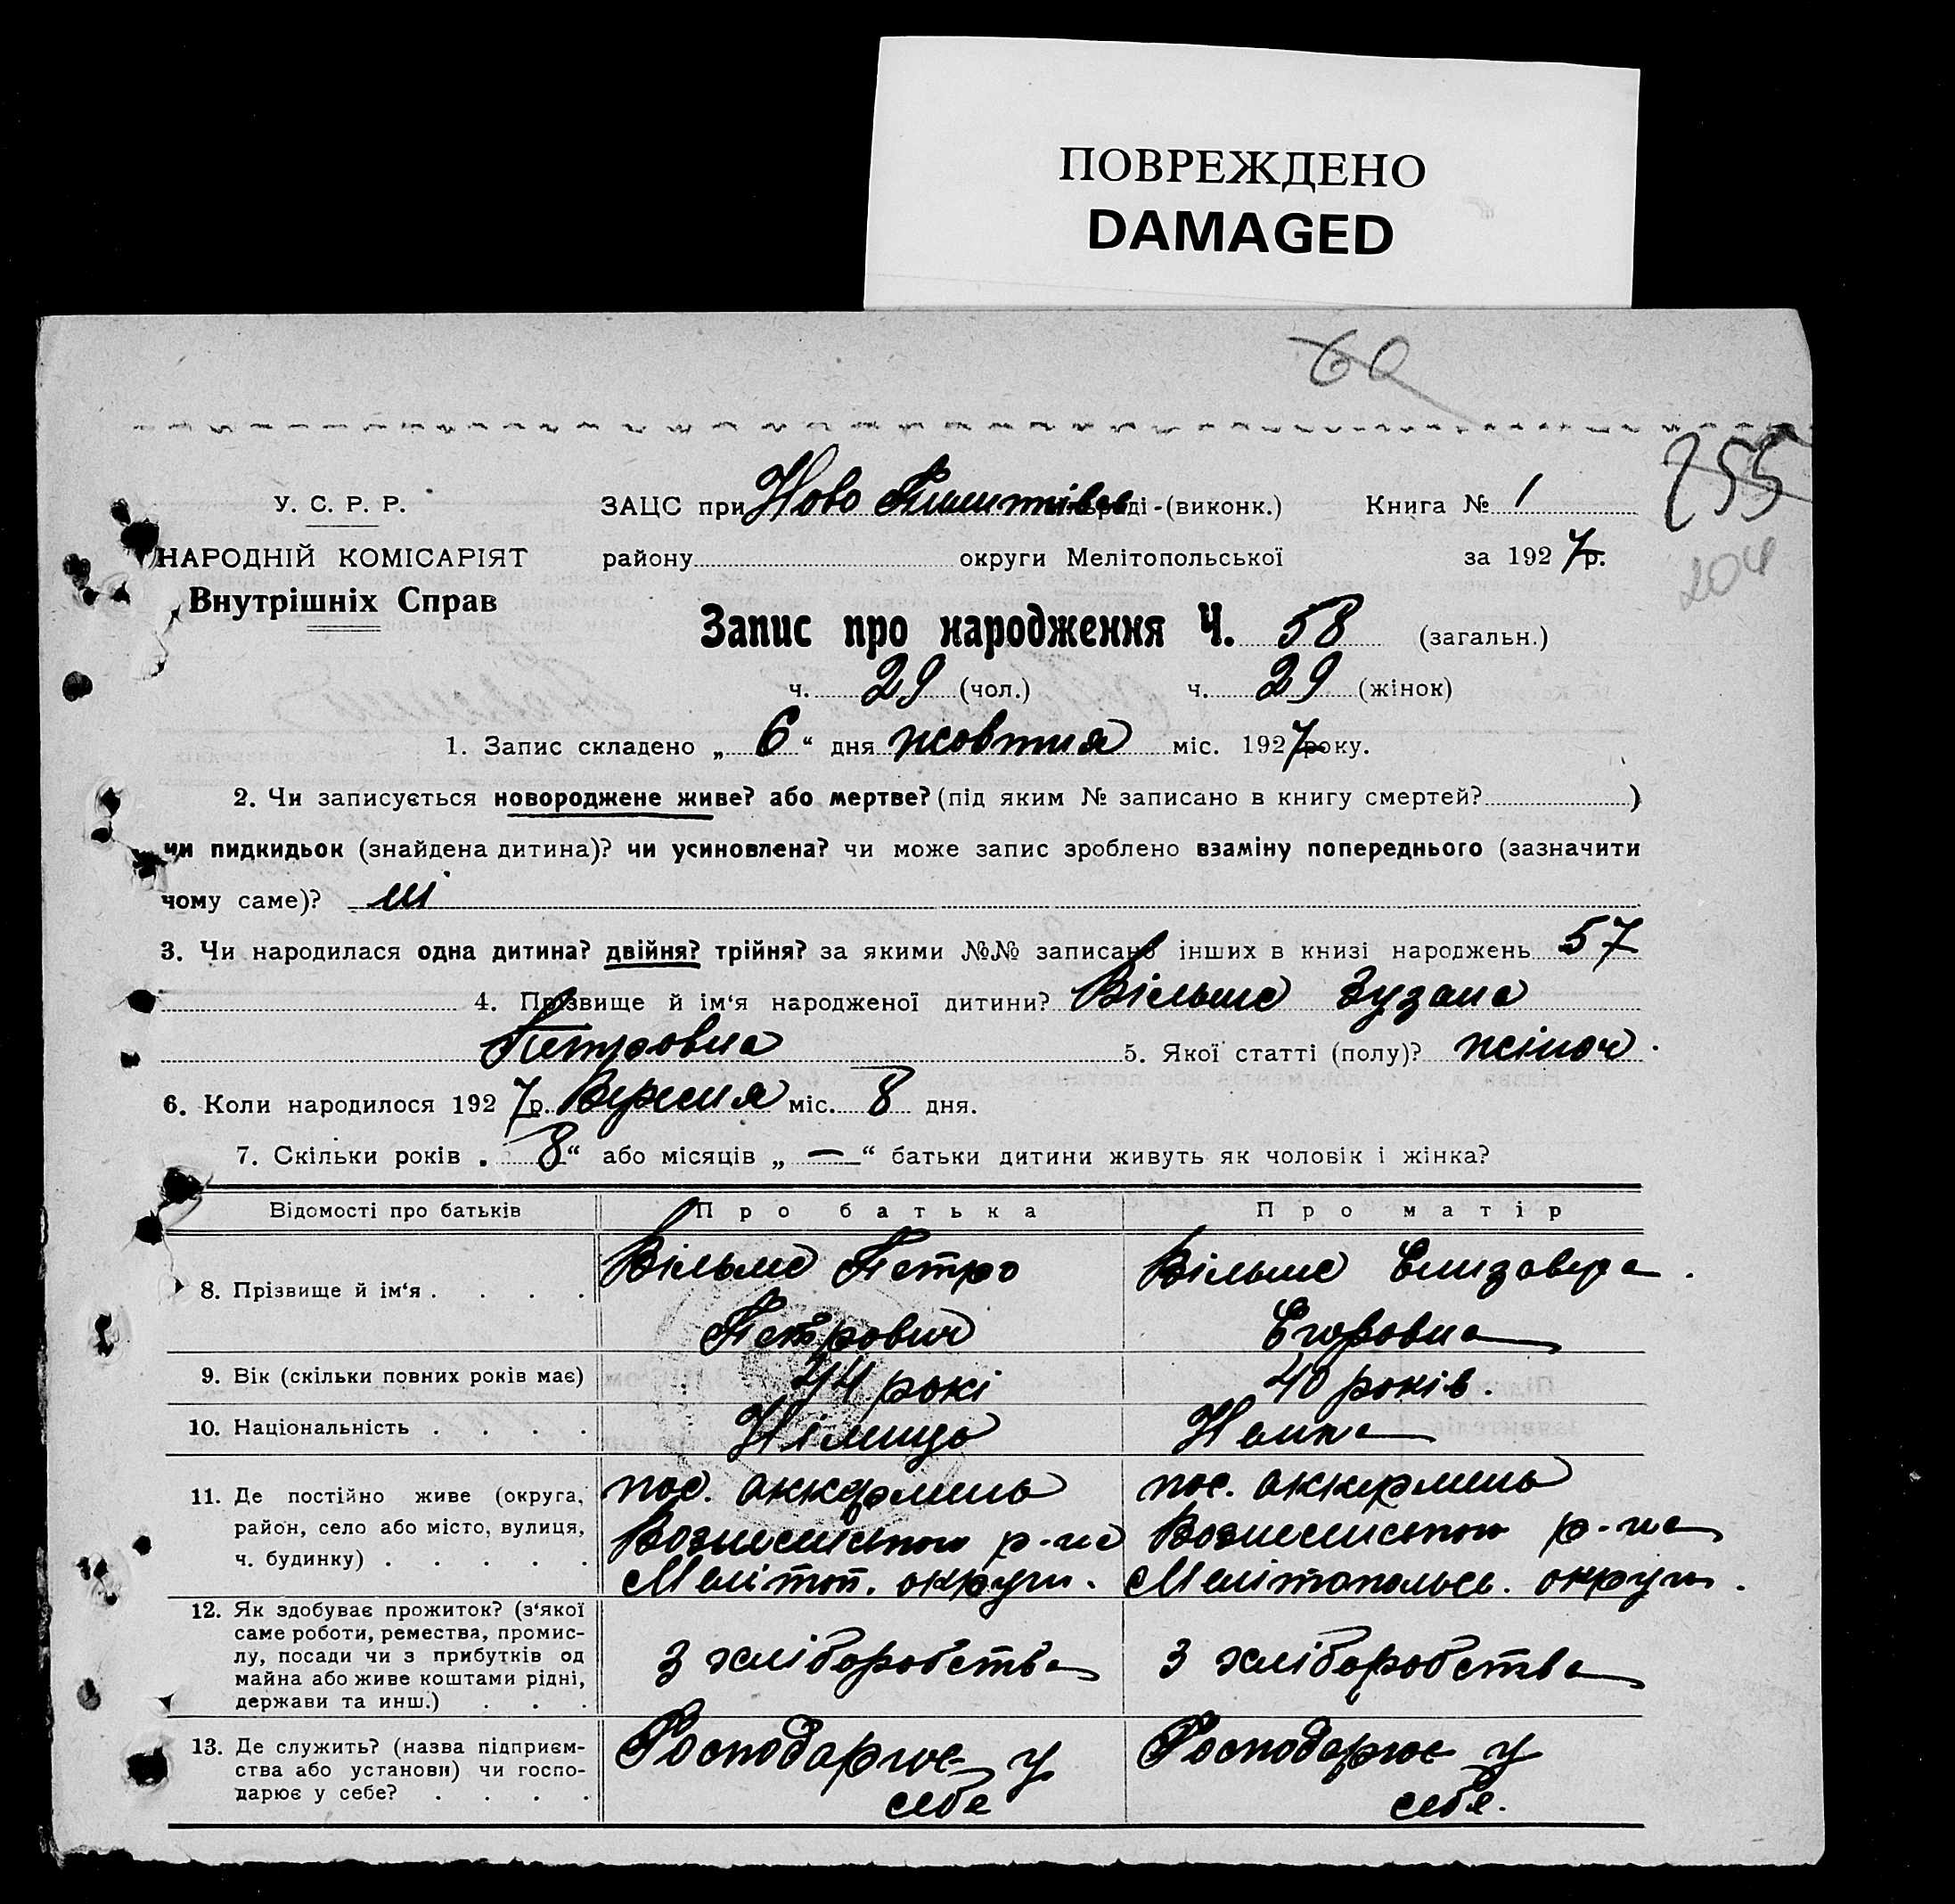 ПОВРЕЖДЕНО
DAMAGED
60
255
204
У. С. Р. Р.
НАРОДНІЙ КОМІСАРІЯТ
Внутрішніх Справ
ЗАЦС при Ново раді-(виконк.) Книга № 1
району округи Мелітопольської за 1927 р.
Запис про народження Ч. 58 (загальн.)
ч. 29 (чол.) ч. 29 (жінок)
1. Запис складено „ 6 “ дня жовтня міс. 1927 року.
2. Чи записується новороджене живе? або мертве? (під яким № записано в книгу смертей? )
чи пидкидьок (знайдена дитина)? чи усиновлена? чи може запис зроблено взаміну попереднього (зазначити
чому саме)? ні
3. Чи народилася одна дитина? двійня? трійня? за якими №№ записано інших в книзі народжень 57
4. Прізвище й ім‘я народженої дитини? Вільмс Зузана
Петровна 5. Якої статті (полу)? жіноч.
6. Коли народилося 1927 р. Вересня міс. 8 дня.
7. Скільки років „ 8 “ або місяців „ — “ батьки дитини живуть як чоловік і жінка?
Відомості про батьків Про батька Про матір
8. Прізвище й ім‘я . . . . Вільмс Петро Вільмс Елизавера.
Петрович Егоровна
9. Вік (скільки повних років має) 44 рокі 40 років.
10. Національність . . . . Німець Немка
11. Де постійно живе (округа, пос. Аккермень пос. Аккермень
район, село або місто, вулиця, р-на р-на
ч. будинку) . . . . . Меліт оп. округи. Мелітопольс. округи.
12. Як здобуває прожиток? (з‘якої
саме роботи, ремества, промис-
лу, посади чи з прибутків од З хліборобства З хліборобства
майна або живе коштами рідні,
держави та инш.) . . .
13. Де служить? (назва підприєм- Господарює у Господарює у
ства або установи) чи госпо- себе себе.
дарює у себе? . . . .